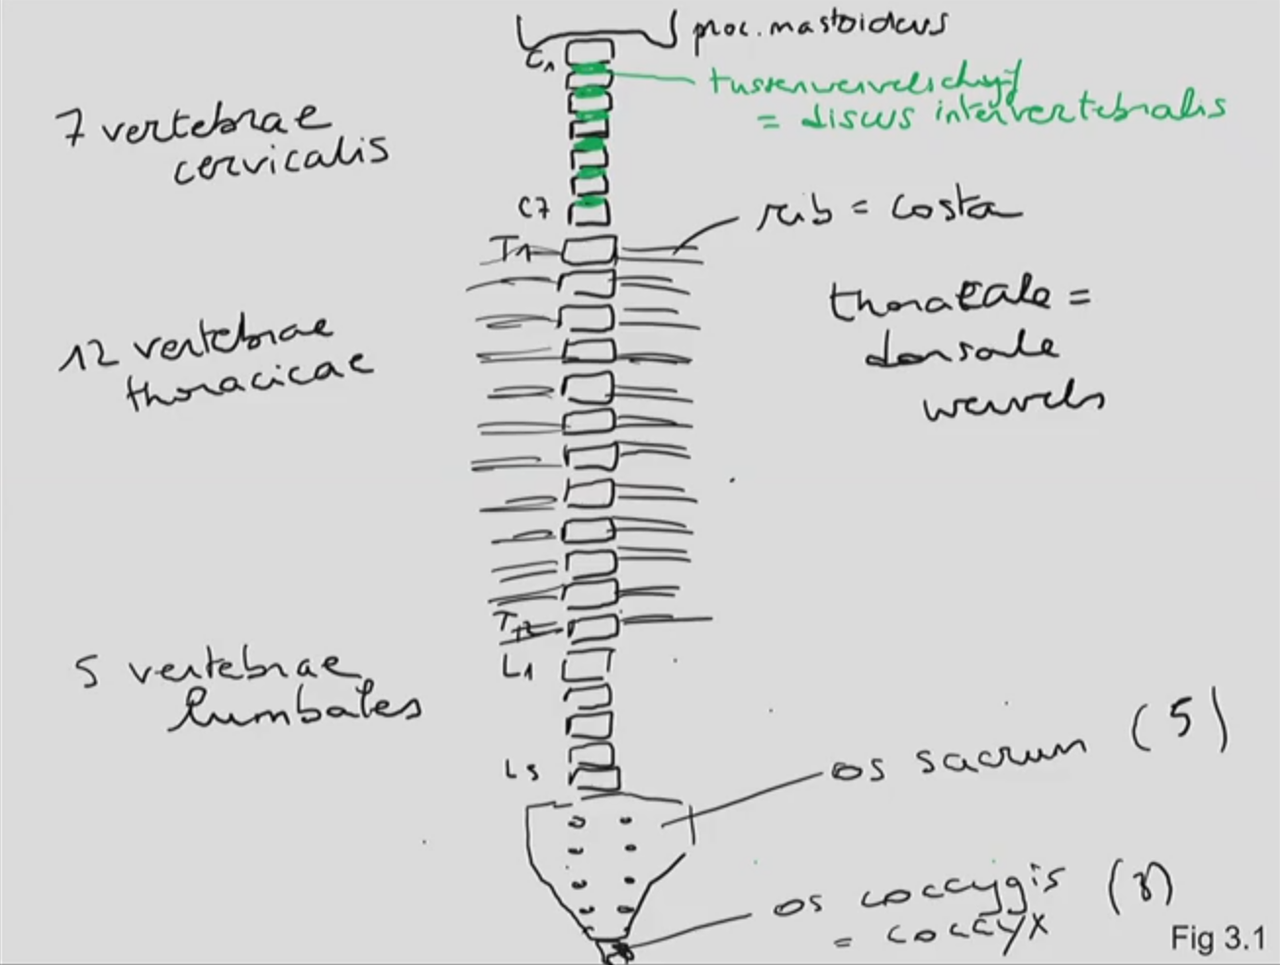 proc. mastoideus
C1
tussenwervelschijf
= discus intervertebralis
7 vertebrae
cervicalis
C7
rib = costa
T1
thoracale =
dorsale
wervels
12 vertebrae
thoracicae
T12
L1
5 vertebrae
lumbales
L5
os sacrum (5)
os coccygis
= coccyx
Fig 3.1